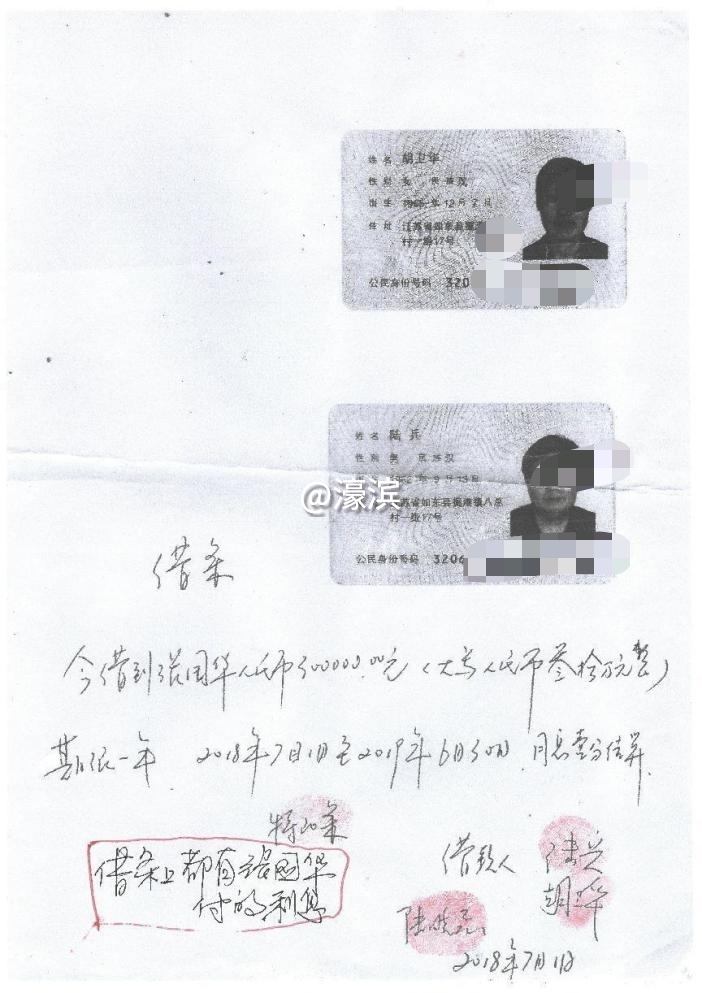 姓名 胡卫华
性别 女 民族 汉
出生 年12月2日
住址 江苏省如东县
村一街17号
公民身份号码 320
姓名 陆兵
性别 男 民族 汉
年9月13日
苏省如东县掘港镇八总
村一街17号
公民身份号码 3206
@濠滨
借条
今借到 国华人民币300000.00元(大写人民币叁拾万元整)
期限一年 2018年7月1日至2019年6月30日 月息壹分结算
特此条
借条上都有 国华
付的利息
借款人 陆兵
胡卫华
陆
2018年7月1日